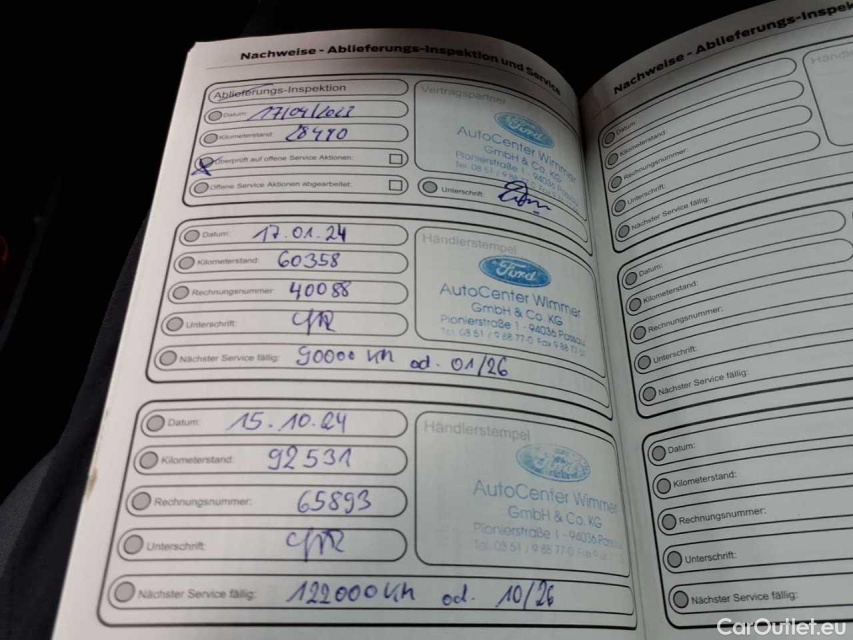 Nachweise - Ablieferungs-Inspektion und Service
Ablieferungs-Inspektion
Datum: 17/04/2023
Kilometerstand: 28490
Überprüft auf offene Service Aktionen:
Offene Service Aktionen abgearbeitet:
Vertragspartner
Ford
AutoCenter Wimmer
GmbH & Co. KG
Pionierstraße 1 - 94036
Tel. 08 51 / 9 88 77-0
Unterschrift:
Datum: 17.01.24
Kilometerstand: 60358
Rechnungsnummer: 40088
Unterschrift:
Nächster Service fällig: 90000 km od. 01/26
Händlerstempel
Ford
AutoCenter Wimmer
GmbH & Co. KG
Pionierstraße 1 - 94036 Passau
Tel. 08 51 / 9 88 77-0 Fax 9 88 77
Datum: 15.10.24
Kilometerstand: 92531
Rechnungsnummer: 65893
Unterschrift:
Nächster Service fällig: 122000 km od. 10/26
Händlerstempel
Ford
AutoCenter Wimmer
GmbH & Co. KG
Pionierstraße 1 - 94036
Tel. 08 51 / 9 88 77-0 Fax 9
Nachweise - Ablieferungs-Inspek
Händl
Datum:
Kilometerstand:
Rechnungsnummer:
Unterschrift:
Nächster Service fällig:
Datum:
Kilometerstand:
Rechnungsnummer:
Unterschrift:
Nächster Service fällig:
Datum:
Kilometerstand:
Rechnungsnummer:
Unterschrift:
Nächster Service fällig:
CarOutlet.eu